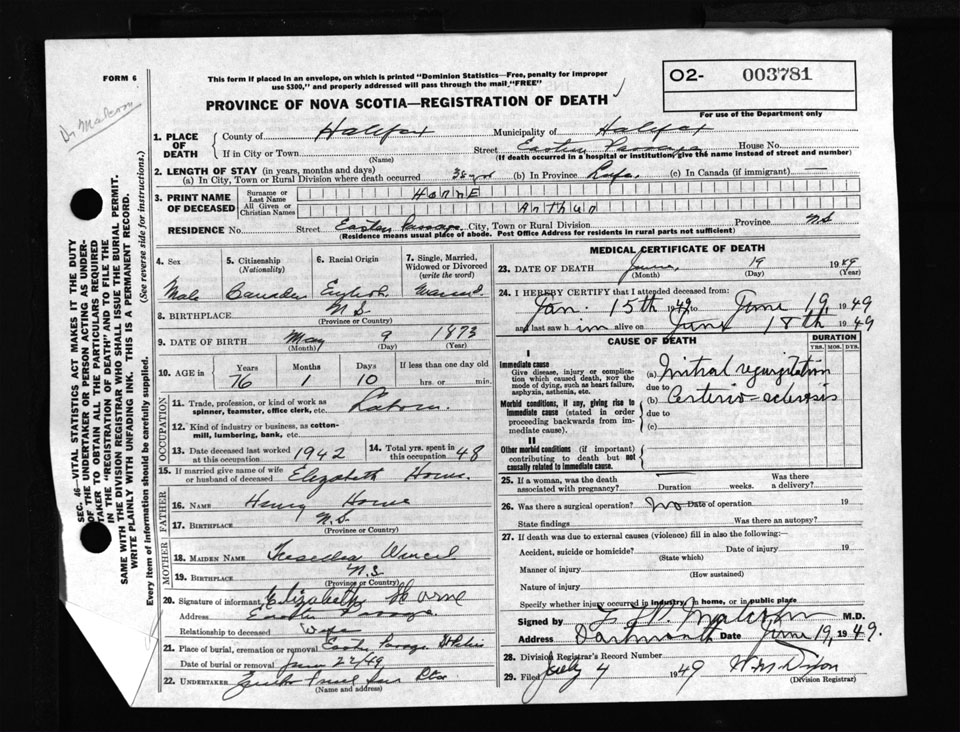 FORM 6
Dr Malcolm
This form if placed in an envelope, on which is printed "Dominion Statistics—Free, penalty for improper
use $300," and properly addressed will pass through the mail "FREE"
PROVINCE OF NOVA SCOTIA—REGISTRATION OF DEATH
O2- 003781
For use of the Department only
SEC. 46—VITAL STATISTICS ACT MAKES IT THE DUTY
OF THE UNDERTAKER OR PERSON ACTING AS UNDER-
TAKER TO OBTAIN ALL THE PARTICULARS REQUIRED
IN THE "REGISTRATION OF DEATH" AND TO FILE THE
SAME WITH THE DIVISION REGISTRAR WHO SHALL ISSUE THE BURIAL PERMIT.
WRITE PLAINLY WITH UNFADING INK. THIS IS A PERMANENT RECORD.
Every item of information should be carefully supplied. (See reverse side for instructions.)
1. PLACE OF DEATH
County of Halifax Municipality of Halifax
If in City or Town (Name) Street Eastern Passage House No.
(If death occurred in a hospital or institution, give the name instead of street and number)
2. LENGTH OF STAY (in years, months and days)
(a) In City, Town or Rural Division where death occurred 38 yrs (b) In Province Life (c) In Canada (if immigrant) —
3. PRINT NAME OF DECEASED
Surname or Last Name HORNE
All Given or Christian Names Arthur
RESIDENCE No. Street Eastern Passage City, Town or Rural Division Province N.S
(Residence means usual place of abode. Post Office Address for residents in rural parts not sufficient)
4. Sex Male
5. Citizenship (Nationality)
6. Racial Origin English
7. Single, Married, Widowed or Divorced (write the word)
8. BIRTHPLACE N S
(Province or Country)
9. DATE OF BIRTH May 9 1873
(Month) (Day) (Year)
10. AGE in Years 76 Months 1 Days 10 If less than one day old hrs. or min.
OCCUPATION
11. Trade, profession, or kind of work as
spinner, teamster, office clerk, etc.
12. Kind of industry or business, as cotton-
mill, lumbering, bank, etc.
13. Date deceased last worked at this occupation 1942 14. Total yrs. spent in this occupation 48
15. If married give name of wife or husband of deceased Elizabeth Horne
FATHER
16. NAME Henry Horne
17. BIRTHPLACE N.S.
(Province or Country)
MOTHER
18. MAIDEN NAME
19. BIRTHPLACE N.S
(Province or Country)
20. Signature of informant Elizabeth Horne
Address Eastern Passage
Relationship to deceased Wife
21. Place of burial, cremation or removal
Date of burial or removal June 22/49
22. UNDERTAKER
(Name and address)
MEDICAL CERTIFICATE OF DEATH
23. DATE OF DEATH June 19 1949
(Month) (Day) (Year)
24. I HEREBY CERTIFY that I attended deceased from:
Jan. 15th 1949 to June 19, 1949
and last saw him alive on June 18th 1949
CAUSE OF DEATH DURATION
YRS. MOS. DYS.
I
Immediate cause
Give disease, injury or complica-
tion which caused death, not the
mode of dying, such as heart failure,
asphyxia, asthenia, etc.
(a) Mitral regurgitation
due to
Morbid conditions, if any, giving rise to
immediate cause (stated in order
proceeding backwards from im-
mediate cause).
(b) Arterio-sclerosis
due to
(c)
II
Other morbid conditions (if important)
contributing to death but not
causally related to immediate cause.
25. If a woman, was the death associated with pregnancy? Duration weeks. Was there a delivery?
26. Was there a surgical operation? No Date of operation 19
State findings Was there an autopsy?
27. If death was due to external causes (violence) fill in also the following:
Accident, suicide or homicide? Date of injury 19
(State which)
Manner of injury
(How sustained)
Nature of injury
Specify whether injury occurred in industry, in home, or in public place
Signed by F. W. Malcolm M.D.
Address Dartmouth Date June 19, 1949.
28. Division Registrar's Record Number
29. Filed July 4 1949
(Division Registrar)